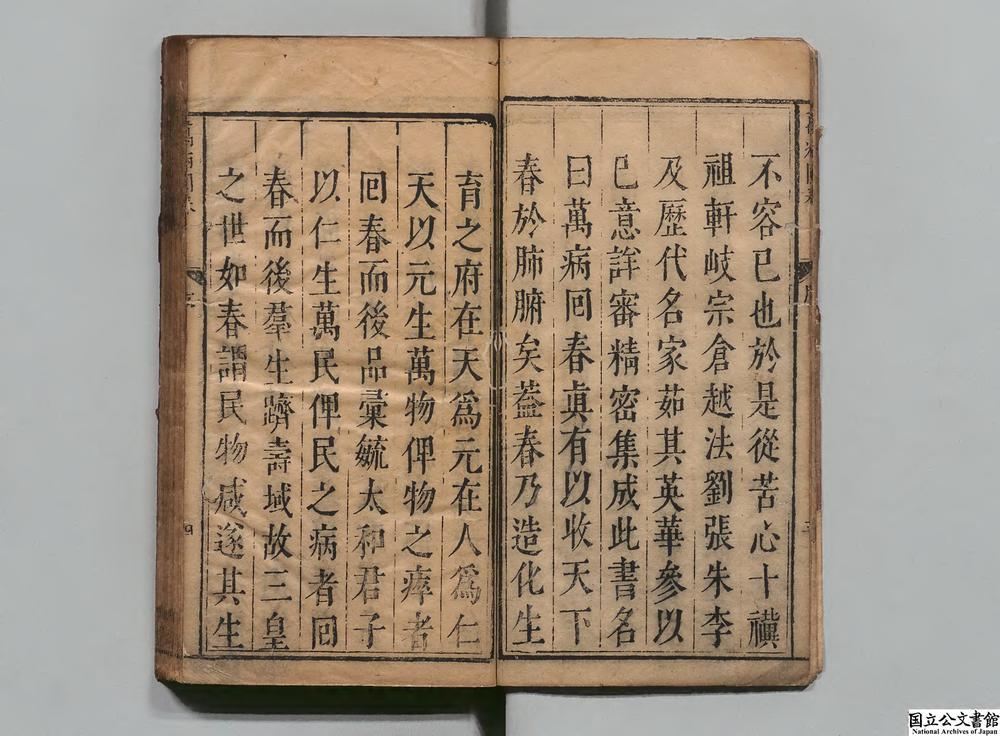 不容已也於是從苦心十禩
祖軒岐宗倉越法劉張朱李
及歷代名家茹其英華參以
已意詳審精密集成此書名
曰萬病回春眞有以收天下
春於肺腑矣葢春乃造化生
育之府在天爲元在人爲仁
天以元生萬物俾物之瘁者
回春而後品彙毓太和君子
以仁生萬民俾民之病者回
春而後羣生躋壽域故三皇
之世如春謂民物咸遂其生
萬病回春
序
三
四
国立公文書館
National Archives of Japan